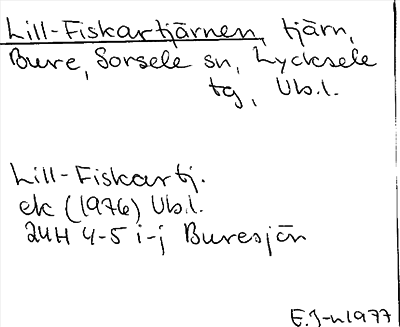 Lill-Fiskartjärnen, tjärn,
Bure, Sorsele sn, Lycksele
tg, Ub.l.
Lill-Fiskartj.
ek (1976) Ub.l.
24H 4-5 i-j Buresjön
E.J-n 1977